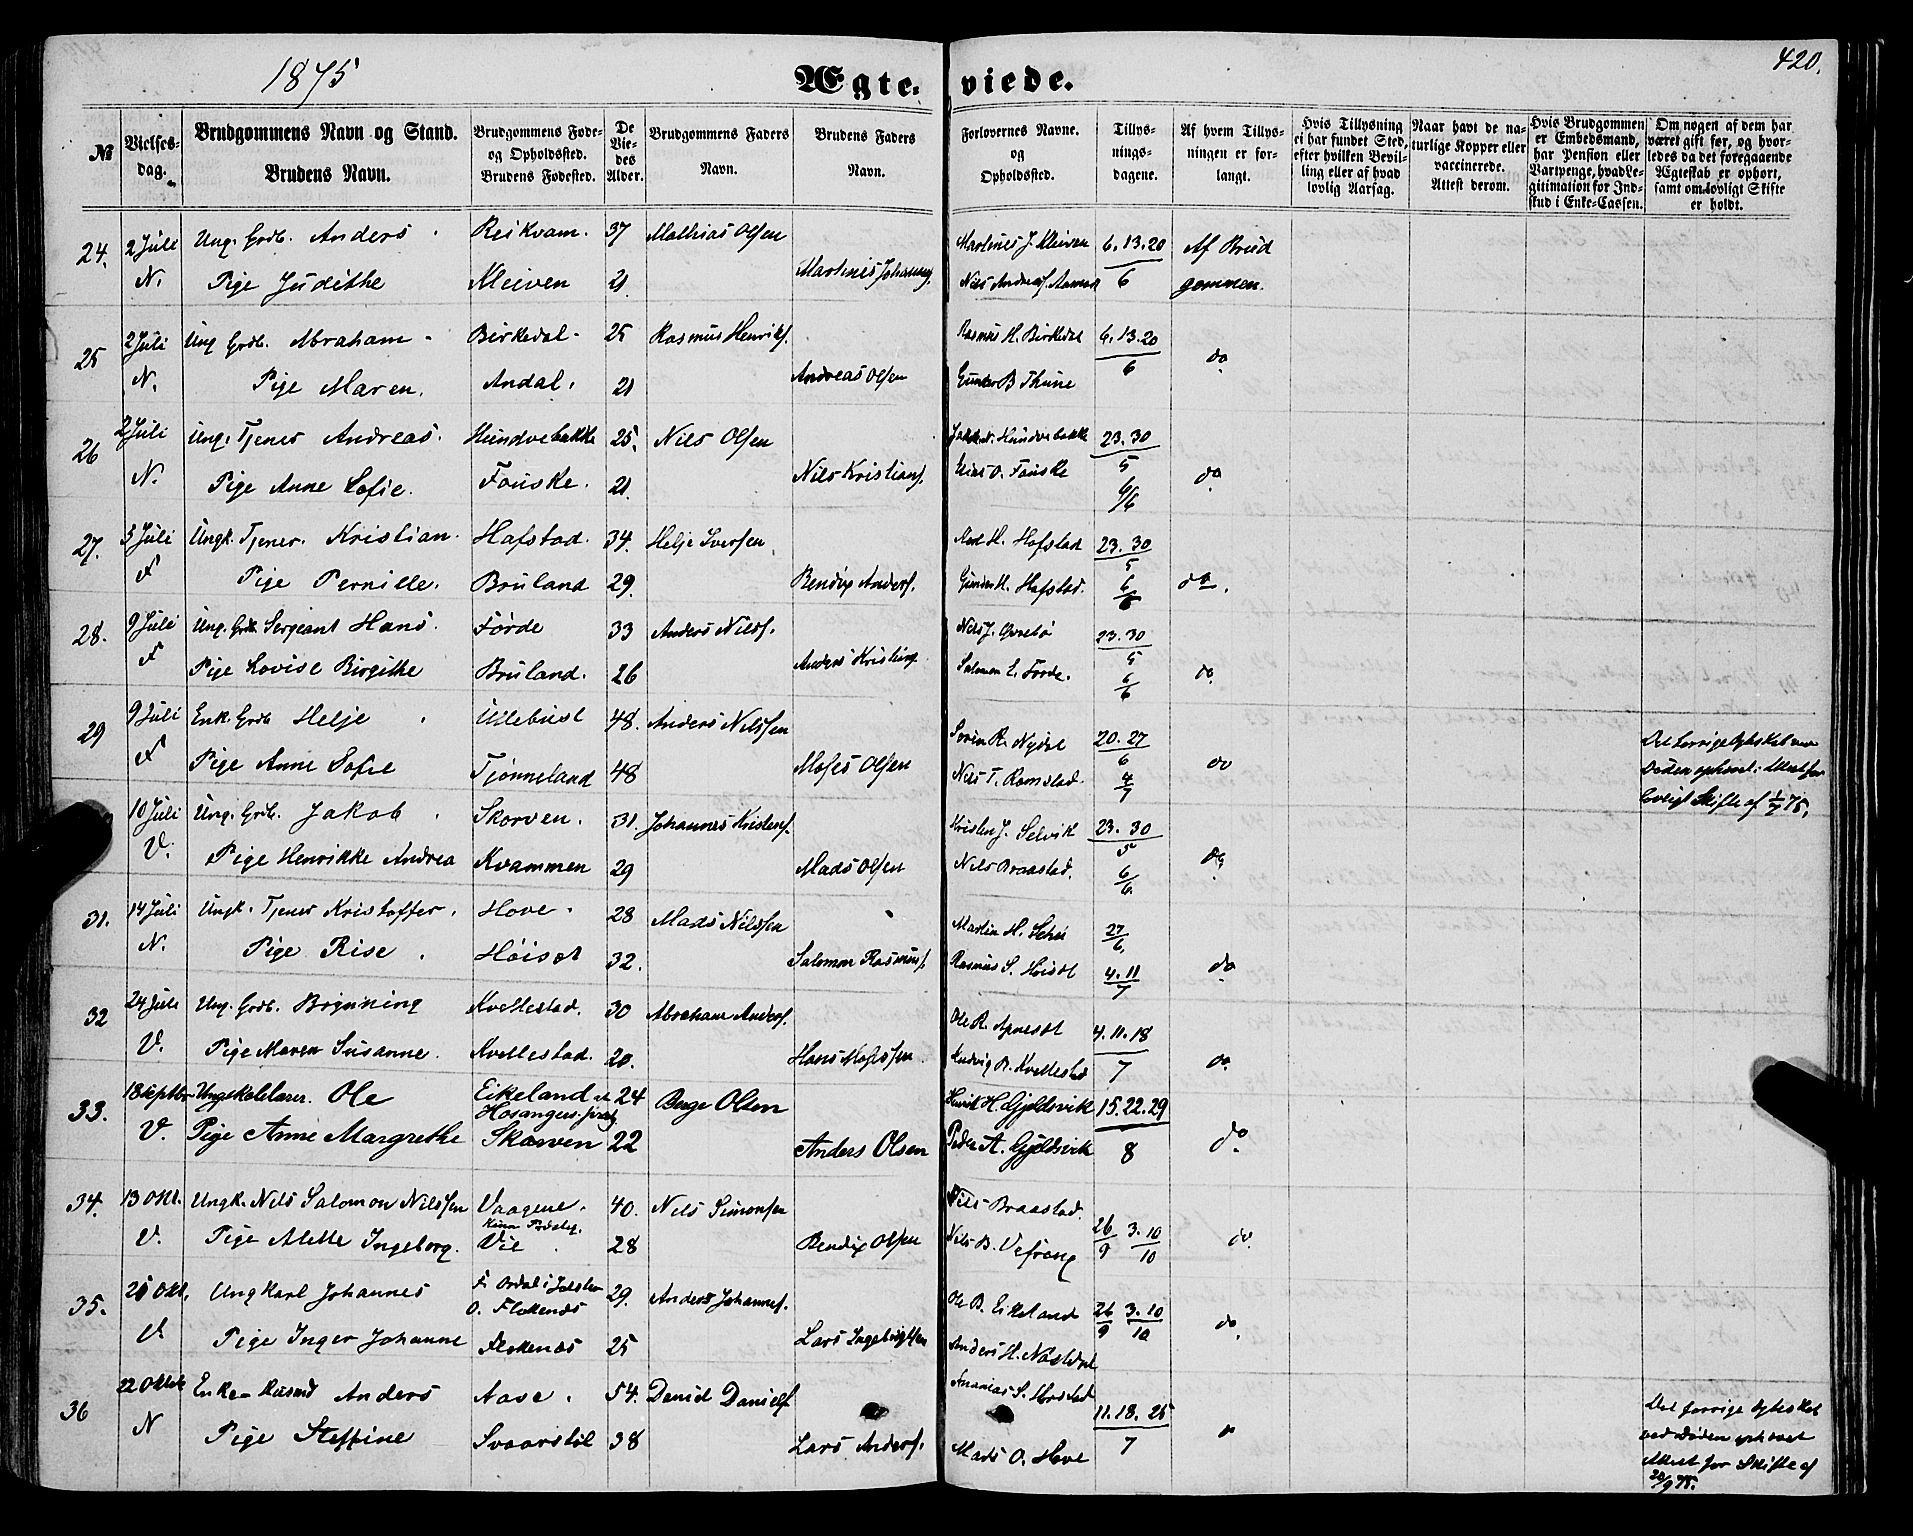 1875
Ægteviede.
420.
№
Vielses-dag.
Brudgommens Navn og Stand.
Brudens Navn.
Brudgommens Føde- og Opholdssted.
Brudens Fødested.
De Viedes Alder.
Brudgommens Faders Navn.
Brudens Faders Navn.
Forlovernes Navne. og Opholdssted.
Tillysningsdagene.
Af hvem Tillysningen er forlangt.
Hvis Tillysning ei har fundet Sted, efter hvilken Bevilling eller af hvad lovlig Aarsag.
Naar havt de naturlige Kopper eller vaccinerede. Attest derom.
Hvis Brudgommen er Embedsmand, har Pension eller Vartpenge, hvad Legitimation for Indskud i Enke-Cassen.
Om nogen af dem har været gift før, og hvorledes da det foregaaende Ægteskab er ophørt, samt om lovligt Skifte er holdt.
24. 2 Juli Ung. Grdb. Anders Reikvam. 37 Mathias Olsen Martinus J. Kleiven 6.13.20 Af Brud
N. Pige Judithe Kleiven 21 Martinus Johannes. Nils Andreas. 6 gommen.
25 2 Juli Ung Grdb. Abraham Birkedal 25 Rasmus Henriks. Rasmus H. Birkedal 6.13.20
N. Pige Maren. Andal. 21 Andreas Olsen Gunder B Thune 6 do
26 2 Juli Ung. Tjener Andreas. Hundvebakke 25. Nils Olsen Hundvebakke 23.30
N. Pige Anne Sofie. Fauske. 21. Nils Kristians. Elias O. Fauske 5 6/6 do
27. 3 Juli Ungk. Tjener. Kristian. Hafstad. 34. Helje Iversen H. Hafstad 23.30
F Pige Pernille. Bruland 29. Bendix Anders. Gunder H. Hafstad. 5 6/6 do.
28. 9 Juli Ung. Grdb. Sergeant Hans. Førde 33 Anders Nils. Nils J. 23.30
F Pige Lovise Birgithe Bruland. 26 Anders Kristians. Salomon E. Førde. 5 6/6 do
29 9 Juli Enk. Grdb Helje Ullebust 48. Anders Nilssen Søren R. Nydal 20.27 Det forrige Ægteskab ved
F Pige Anne Sofie Tjønneland 48 Moses Olsen Nils T. Ramstad. 6 4/7 do Døden ophævet. Attest for
lovligt Skifte af 1/7 75.
10 Juli Ung. Grdb. Jakob Skorven. 31. Johannes Kristens. Kristen J. Selvik 23.30
V. Pige Henrikke Andrea Kvammen 29 Mads Olsen Nils Braastad. 5 6/6. do
31. 14 Juli Ungk. Tjener Kristoffer. Hove. 28 Mads Nilssen Martin H. 27/6
N. Pige Rise Høiset 32. Salomon Rasmus. Rasmus S. Høiset 4.11/7 do
32 24 Juli Ung. Grdb. Brynning Kvellestad. 30 Abraham Anders. Ole R. 4.11.18
V. Pige Maren Susanne. Kvellestad. 20. Hans Mossen Ludvig B. Kvellestad 7 do
33. 18 Septbr Ungk. Ole Eikeland 24 Berge Olsen Henrik H. Gjeldsvik 15.22.29
Hosangers
V. Pige Anne Margrethe Skorven 22 Anders Olsen Peder A. Gjeldsvik 8 do
34. 13 Okt. Ungk. Nils Salomon Nilssen Vaagene. 40. Nils Simonsen Nils Braastad.
Kinn Præsteg.
V. Pige Alette Ingeborg. Vie 28 Bendix Olsen Nils B. Vefring 26/9 3.10/10 do
35. 21 Okt. Ungkarl Johannes F. Ordal i Jølster 29. Anders Johannes. Ole B. Eikeland 26/9 3.10/10 do
O. Flokenæs
V Pige Inger Johanne Flokenæs 25 Lars Ingebrigtsen Anders H. Næstdal
36 22 Oktob Enkem Husmd Anders Aase. 54. Daniel Daniels. Ananias S. 11.18.25 Det forrige Ægteskab
N Pige Steffine Svaarstøl 38 Lars Anders. Mads O. Hove 7 do ved Døden ophævet
Attest for Skifte af
20/9 75.